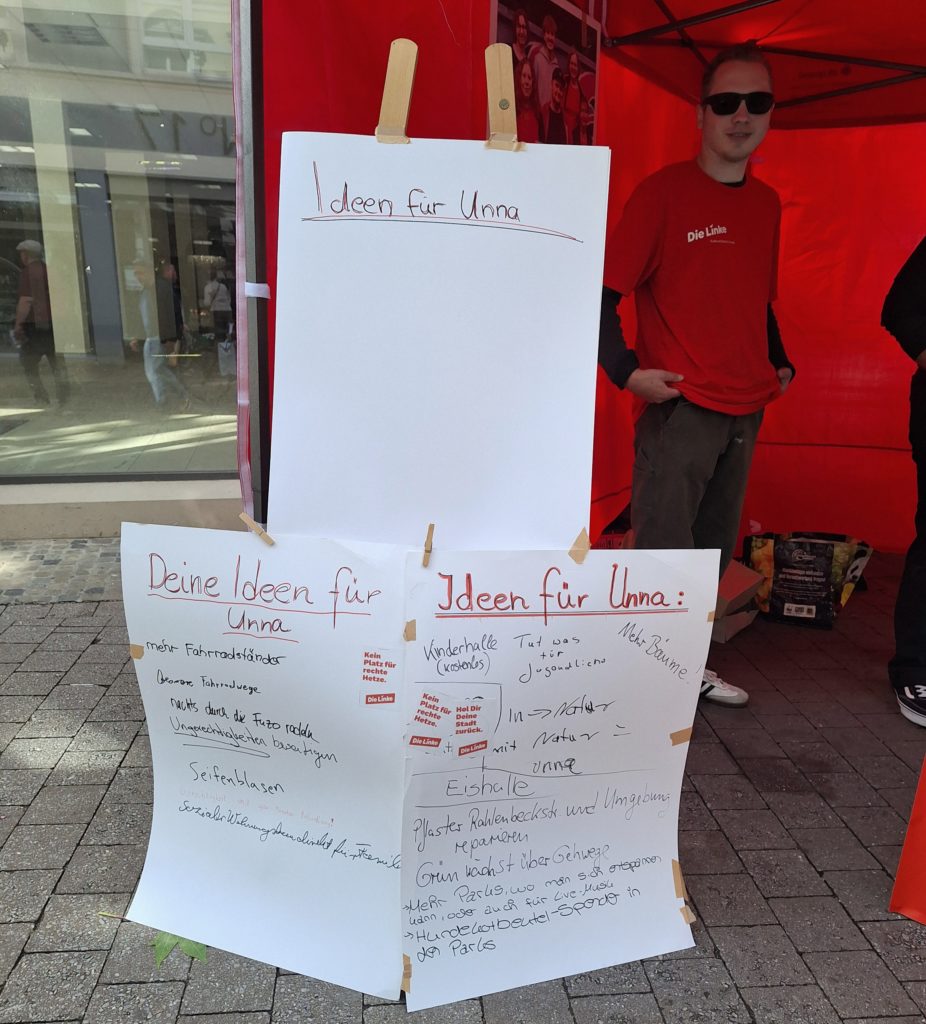 Nº 17
Ideen für Unna
Die Linke
Deine Ideen für
Unna
mehr Fahrradständer
Fahrradwege
nachts durch die Fuzo radeln
Ungerechtigkeiten beseitigen
Seifenblasen
Sozialer Wohnungsbau
Kein
Platz für
rechte
Hetze.
Die Linke
Ideen für Unna:
Kinderhalle
(kostenlos)
Tut was
für
Jugendliche
Mehr Bäume!
Kein
Platz für
rechte
Hetze.
Die Linke
Hol Dir
Deine
Stadt
zurück.
Die Linke
In → Natur
mit Natur =
Unna
Eishalle
Pflaster Rahlenbeckstr und Umgebung
reparieren
Grün wächst über Gehwege
→ Mehr Parks, wo man sich entspannen
kann, oder auch für Live-Musik
→ Hundekotbeutel-Spender in
den Parks